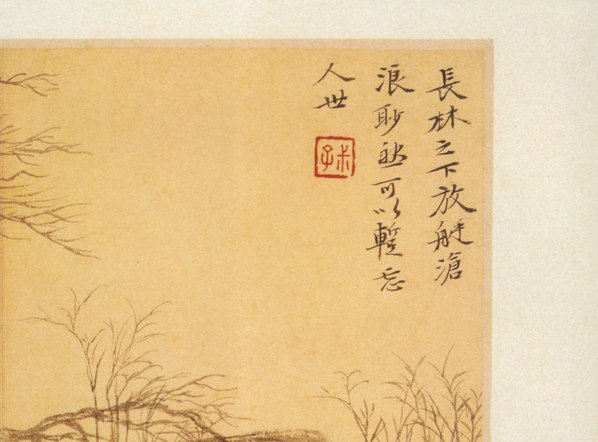 長林之下放艇滄
浪眇然可以暫忘
人世